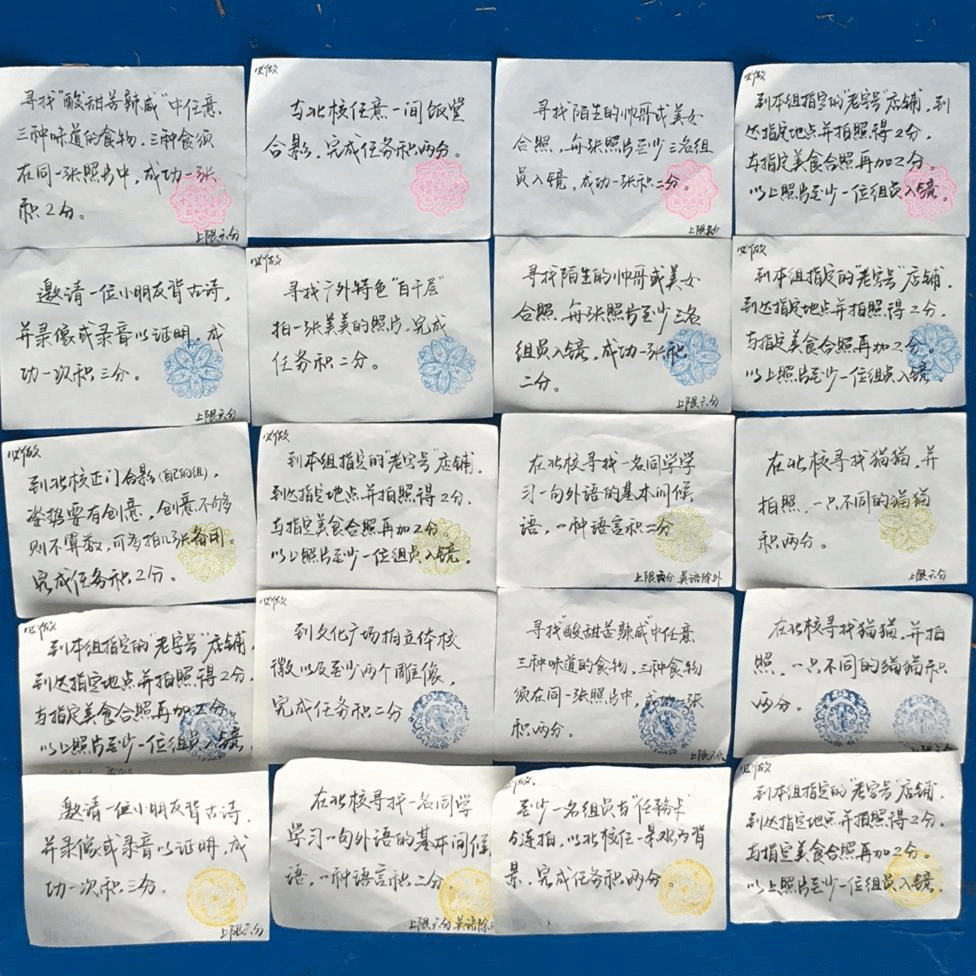 寻找"酸甜苦辣咸"中任意
三种味道的食物,三种食须
在同一张照片中,成功一张
积2分。
上限六分
必做
与北校任意一间饭堂
合影,完成任务积两分。
寻找陌生的帅哥或美女
合照,每张照片至少三名组
员入镜,成功一张积二分。
上限六分
必做
到本组指定的"老字号"店铺,到
达指定地点并拍照得2分,
与指定美食合照再加2分。
以上照片至少一位组员入镜。
邀请一位小朋友背古诗,
并录像或录音以证明,成
功一次积三分。
上限六分
必做
寻找广外特色"百千层"
拍一张美美的照片,完成
任务积二分。
寻找陌生的帅哥或美女
合照,每张照片至少三名
组员入镜,成功一张积
二分。
上限六分
必做
到本组指定的"老字号"店铺,
到达指定地点并拍照得2分,
与指定美食合照再加2分。
以上照片至少一位组员入镜。
必做
到北校正门合影(自己的组),
姿势要有创意,创意不够
则不算数,可多拍几张备用。
完成任务积2分。
必做
到本组指定的"老字号"店铺,
到达指定地点并拍照得2分,
与指定美食合照再加2分。
以上照片至少一位组员入镜。
在北校寻找一名同学学
习一句外语的基本问候
语,一种语言积二分
上限六分 英语除外
在北校寻找猫猫,并
拍照,一只不同的猫猫
积两分。
上限六分
必做
到本组指定的"老字号"店铺,
到达指定地点并拍照得2分,
与指定美食合照再加2分。
以上照片至少一位组员入镜,
必做
到文化广场拍立体校
徽以及至少两个雕像,
完成任务积二分
寻找"酸甜苦辣咸"中任意
三种味道的食物,三种食物
须在同一张照片中,成功一张
积两分。
上限六分
在北校寻找猫猫,并拍
照,一只不同的猫猫积
两分。
邀请一位小朋友背古诗,
并录像或录音以证明,成
功一次积三分。
上限六分
在北校寻找一名同学
学习一句外语的基本问候
语,一种语言积二分。
上限六分 英语除
必做
至少一名组员与"任务卡"
合连拍,以北校任一景观为背
景,完成任务积两分。
必做
到本组指定的"老字号"店铺,
到达指定地点并拍照得2分,
与指定美食合照再加2分。
以上照片至少一位组员入镜.